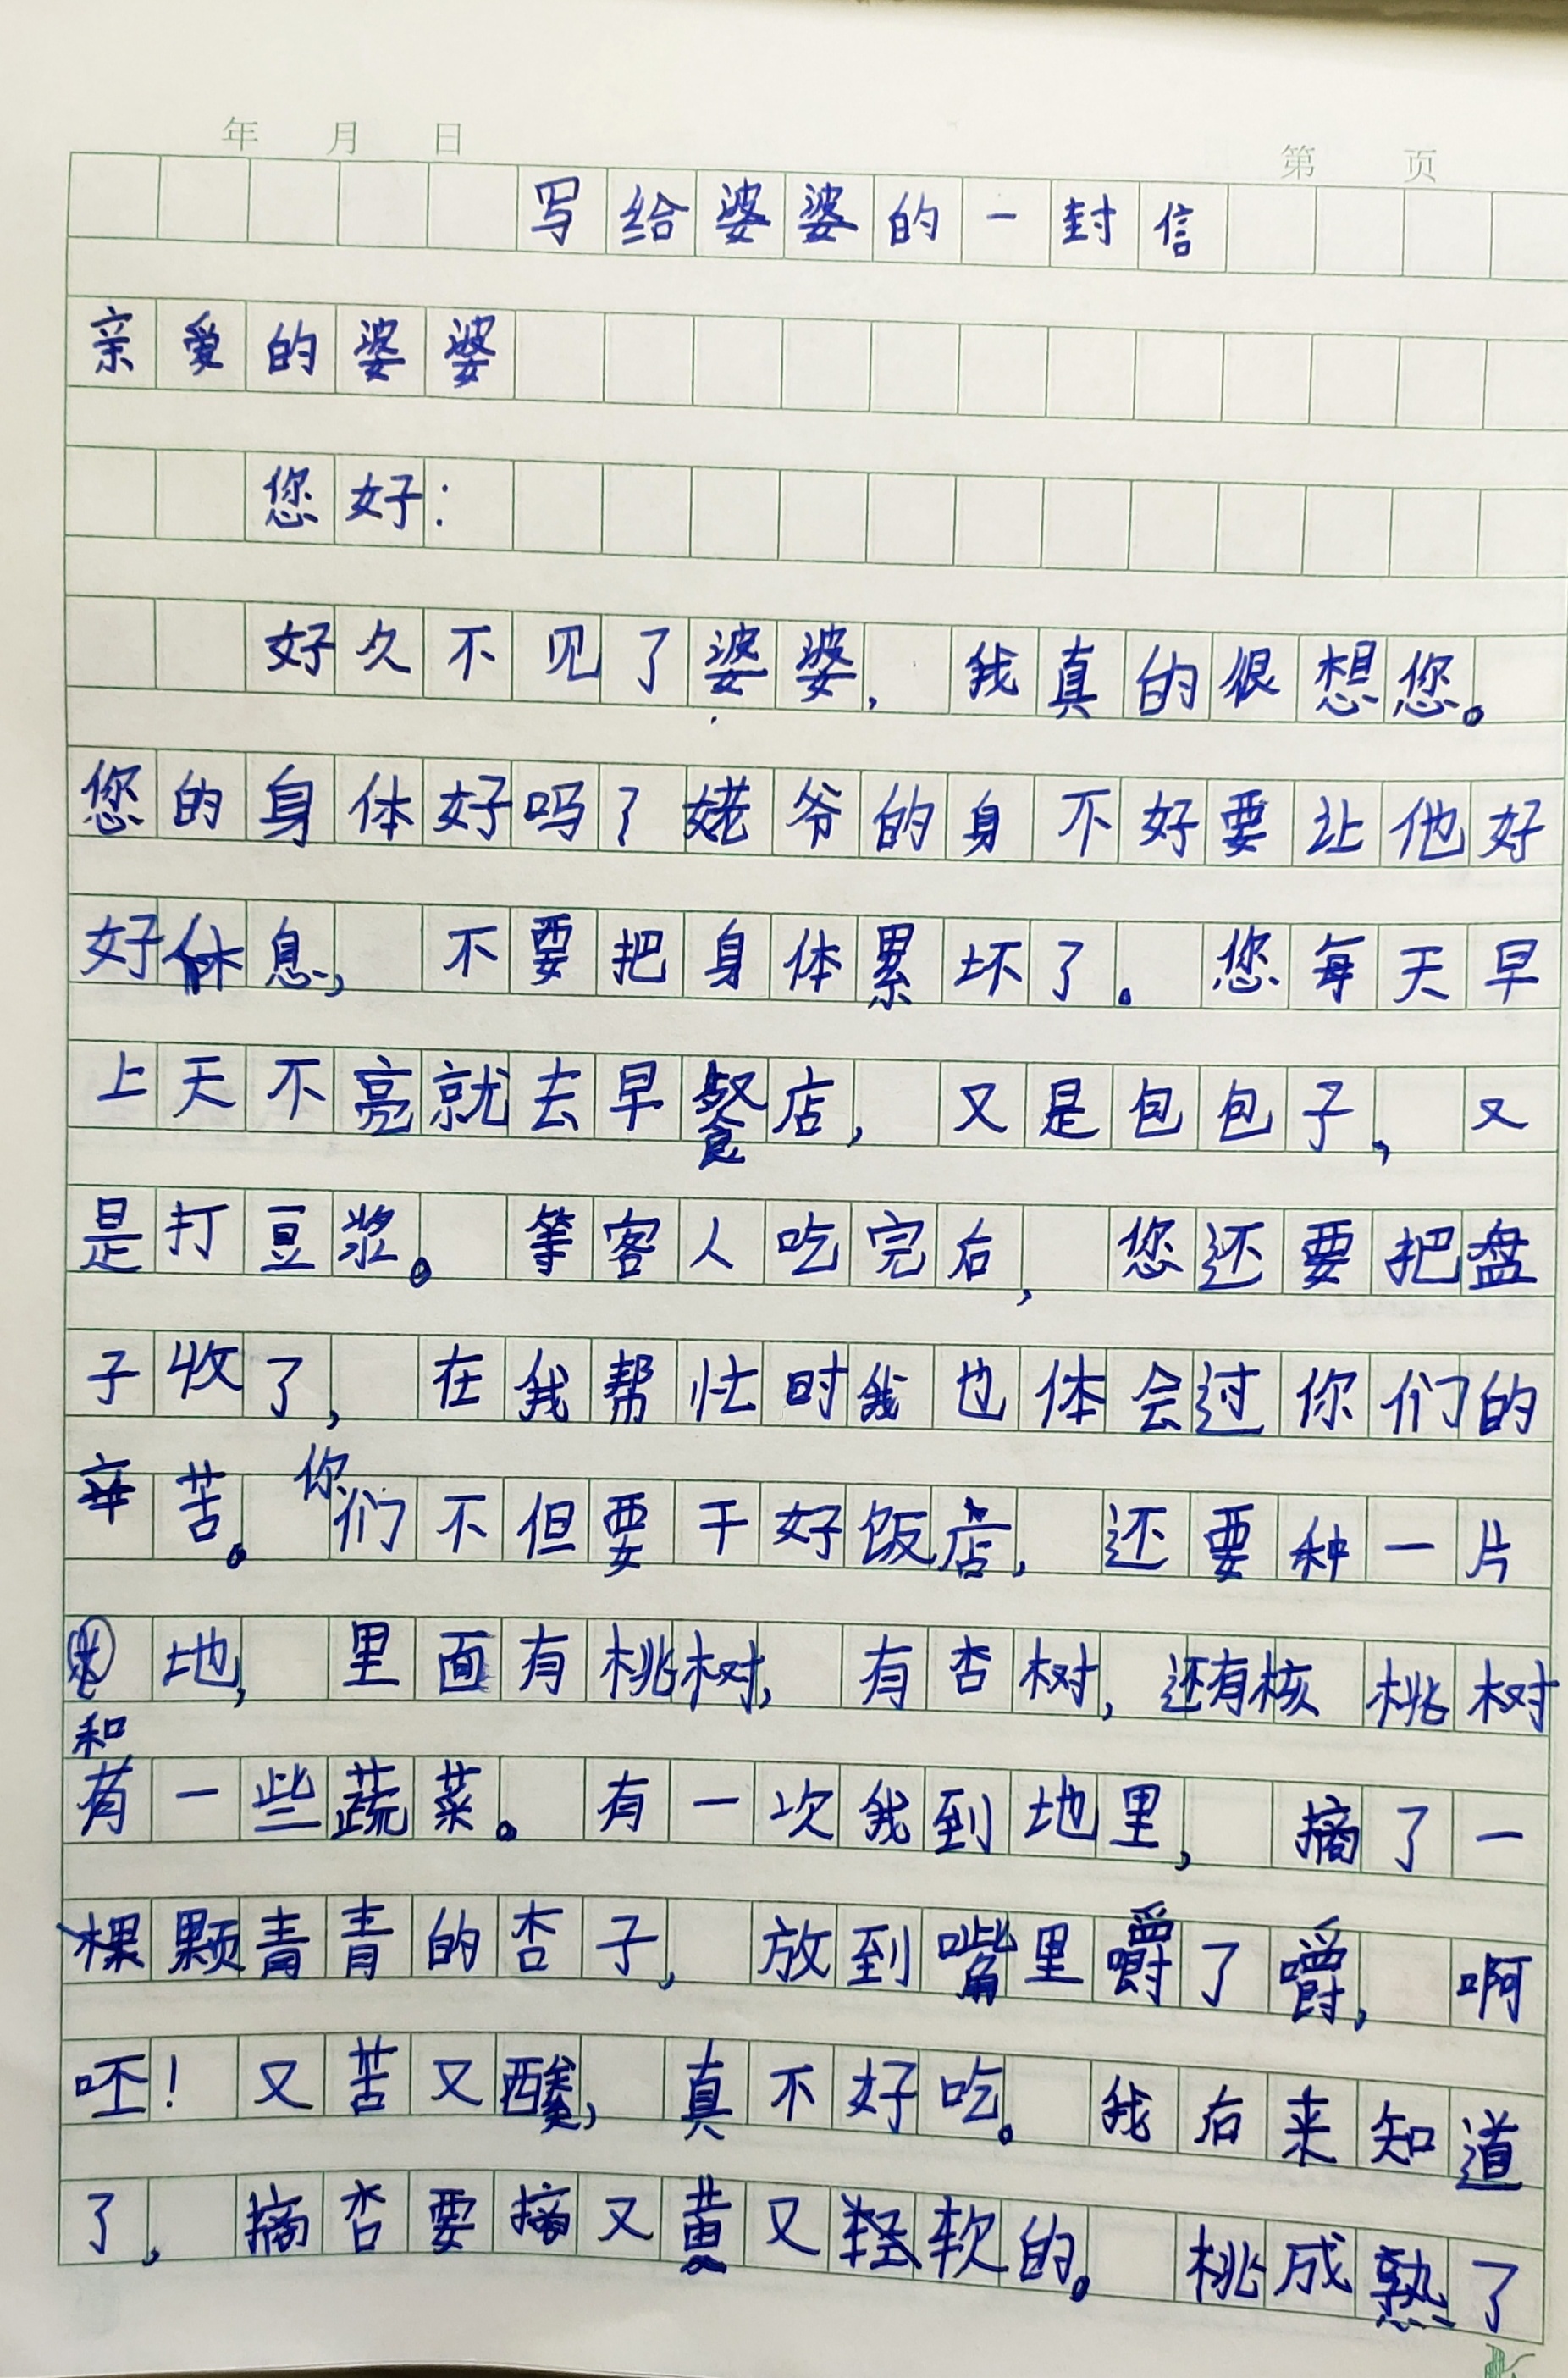 年 月 日 第 页
写给婆婆的一封信
亲爱的婆婆
您好:
好久不见了婆婆,我真的很想您。
您的身体好吗?姥爷的身不好要让他好
好休息,不要把身体累坏了。您每天早
上天不亮就去早餐店,又是包包子,又
是打豆浆。等客人吃完后,您还要把盘
子收了,在我帮忙时我也体会过你们的
辛苦。你们不但要干好饭店,还要种一片
地,里面有桃树,有杏树,还有核桃树
和
有一些蔬菜。有一次我到地里,摘了一
棵颗青青的杏子,放到嘴里嚼了嚼,啊
呸!又苦又酸,真不好吃。我后来知道
了,摘杏要摘又黄又轻软的。桃成熟了